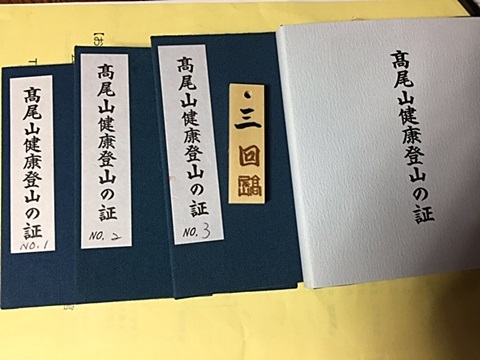 髙尾山健康登山の証
NO.1
髙尾山健康登山の証
NO.2
髙尾山健康登山の証
NO.3
三回
髙尾山健康登山の証